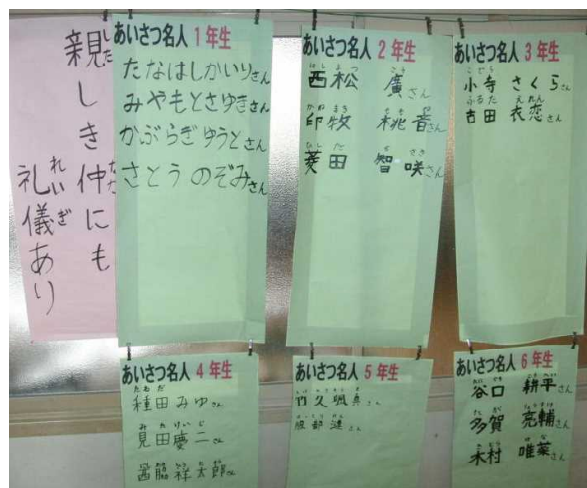 親しき仲にも
礼儀あり
あいさつ名人 1年生
たなはしかいりさん
みやもとさゆきさん
かぶらぎゆうとさん
さとうのぞみさん
あいさつ名人 2年生
西松 廣さん
印牧 桃香さん
菱田 智咲さん
あいさつ名人 3年生
小寺 さくらさん
古田 衣恋さん
あいさつ名人 4年生
種田みゆさん
見田慶二さん
西脇祥太郎さん
あいさつ名人 5年生
竹久颯真さん
服部達さん
あいさつ名人 6年生
谷口 耕平さん
多賀 亮輔さん
木村 唯菜さん